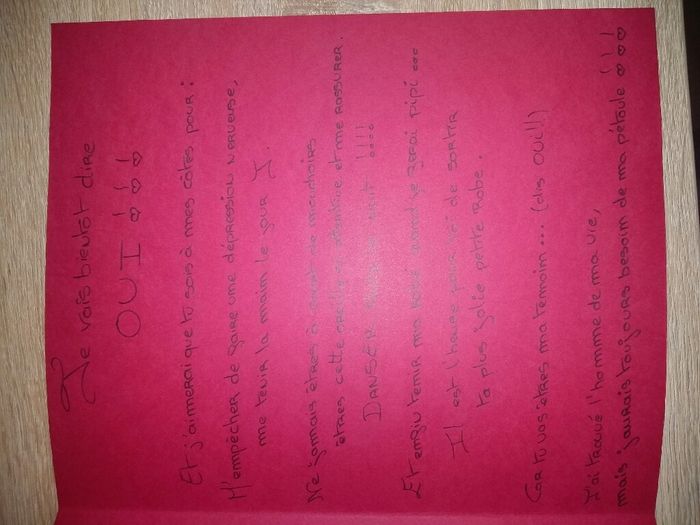 Je vais bientôt dire
OUI !!!
Et j'aimerai que tu sois à mes côtés pour :
M'empêcher de faire une dépression nerveuse,
me tenir la main le jour J.
Ne jamais êtres à court de mouchoirs
êtres cette oreille attentive et me rassurer.
DANSER toute la nuit !!!!
Et enfin tenir ma robe quand je ferai pipi ...
Il est l'heure pour toi de sortir
ta plus jolie petite robe.
Car tu vas êtres ma témoin ... (dis oui !!)
J'ai trouvé l'homme de ma vie,
mais j'aurais toujours besoin de ma pétoule !!!